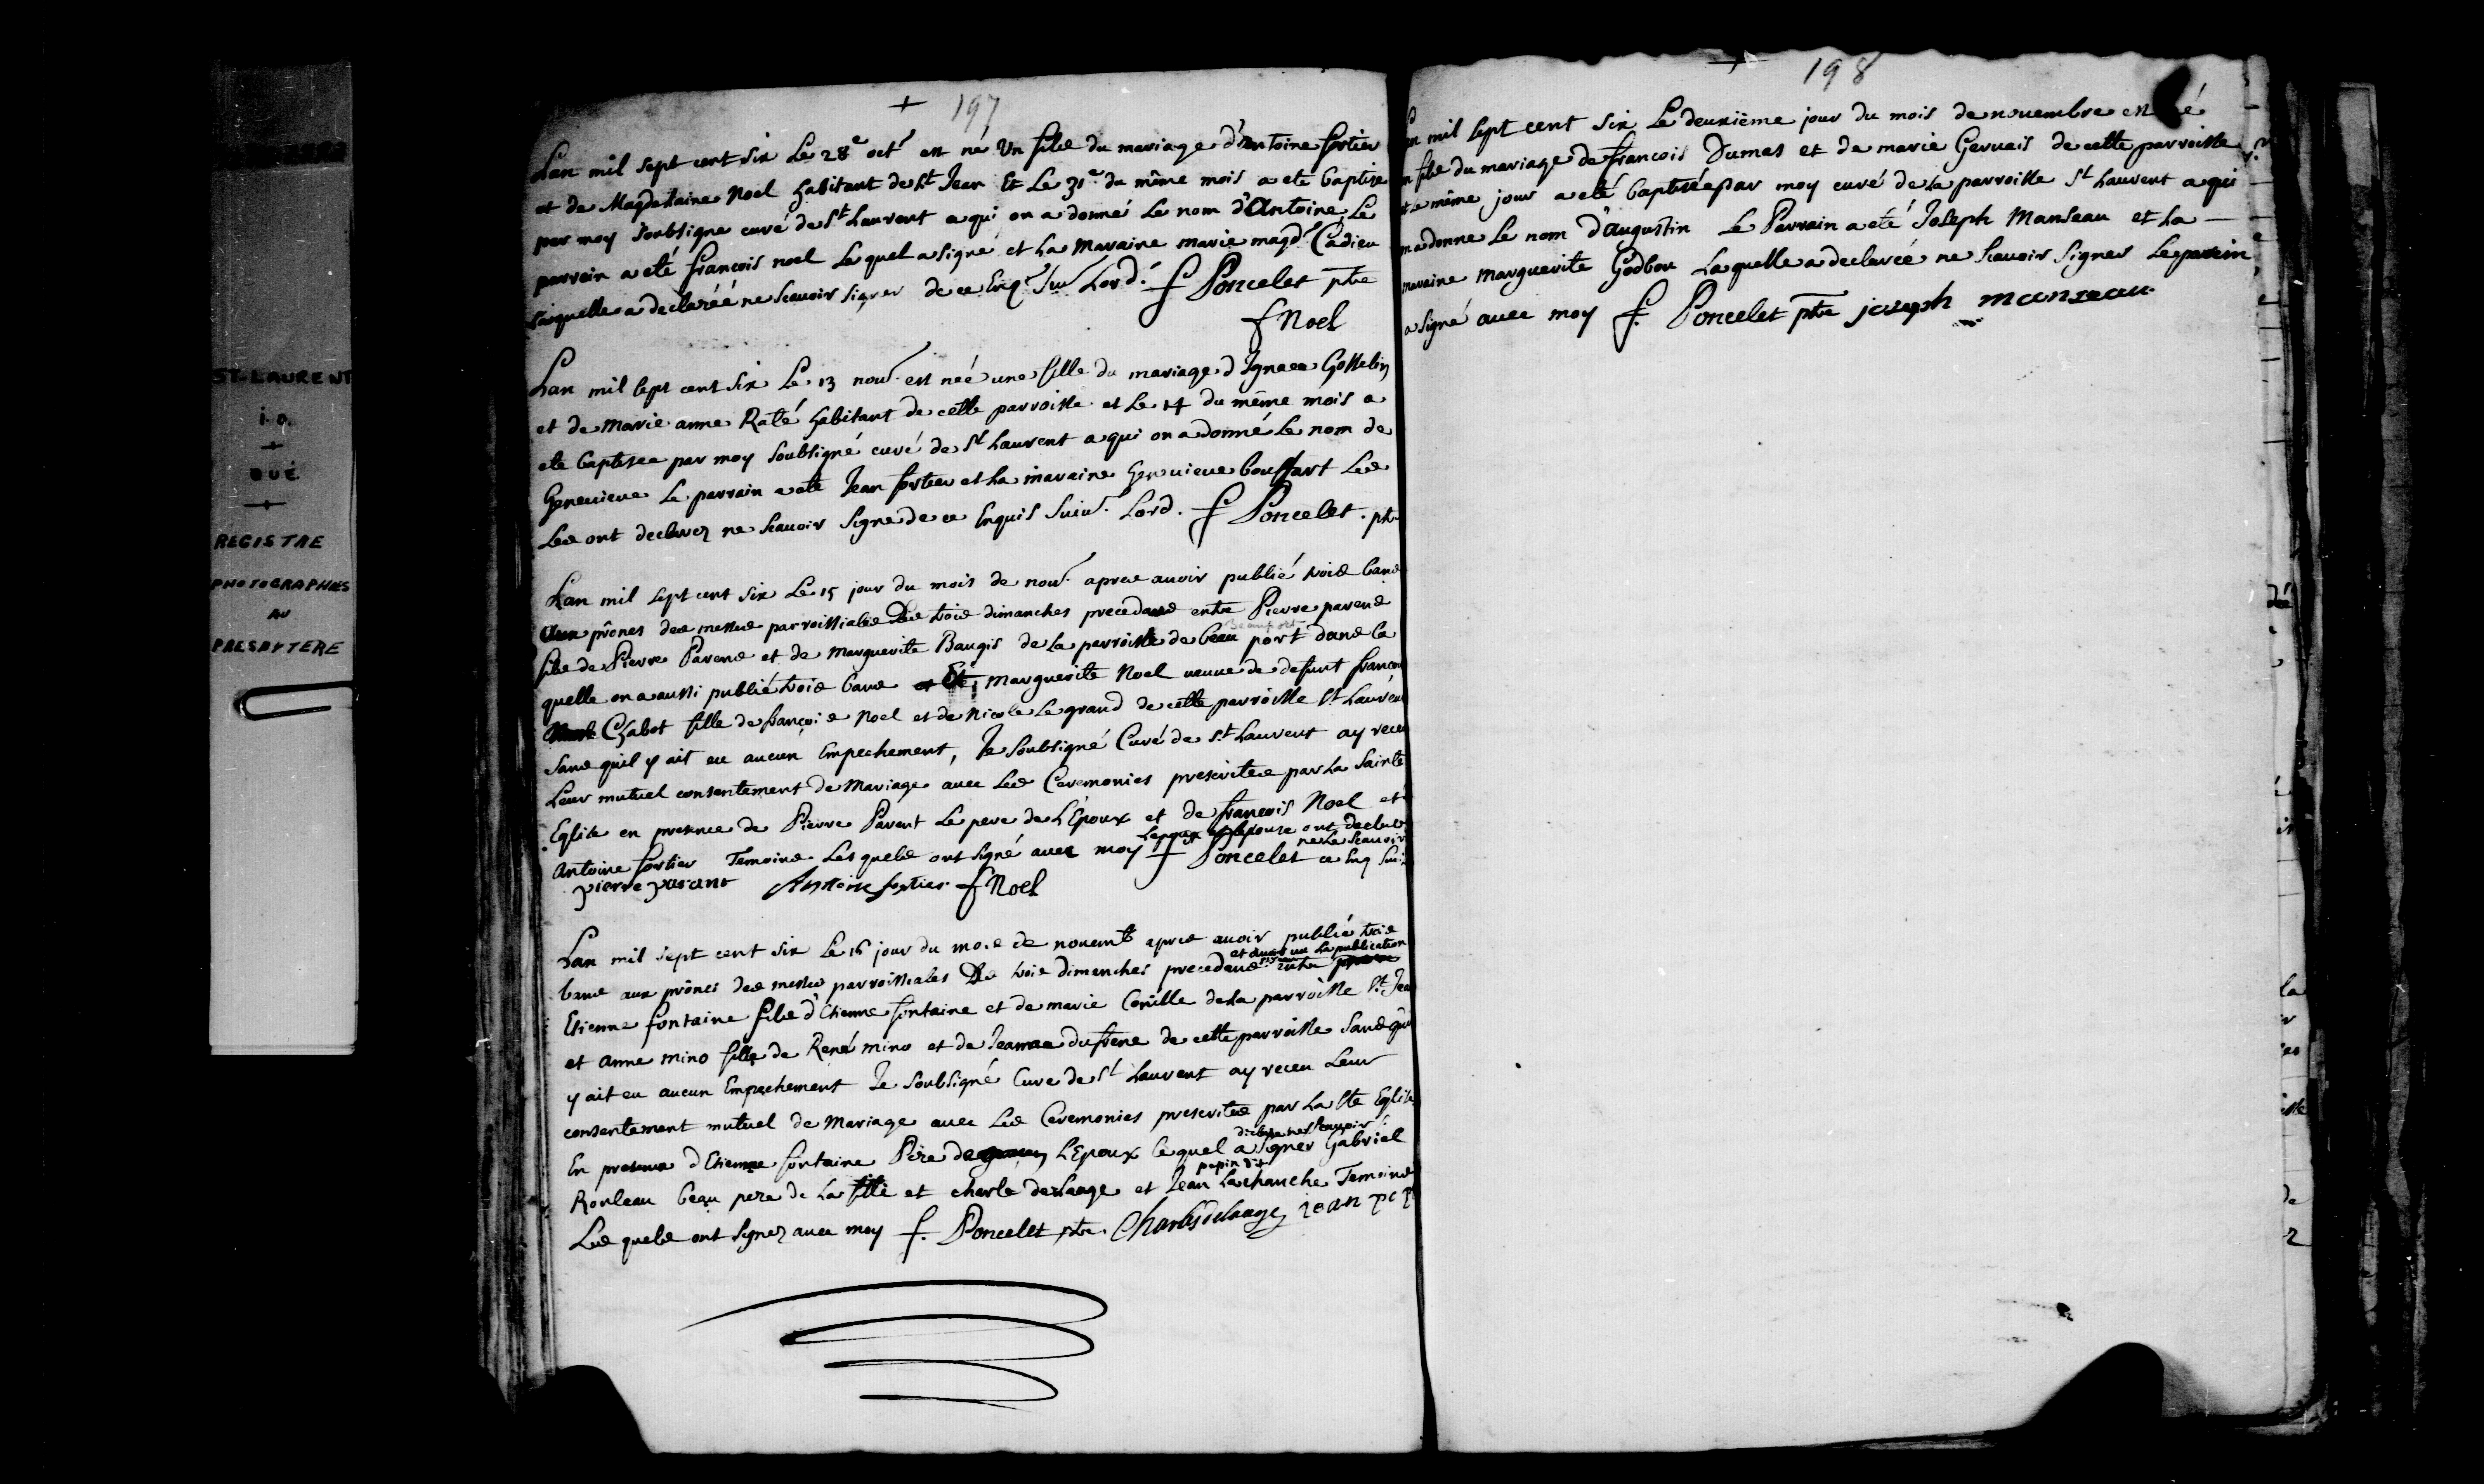 ST-LAURENT
i.o.
+
QUÉ
+
REGISTRE
PHOTOGRAPHIÉS
AU
PRESBYTERE
+ 197
Lan mil sept cent six Le 28e oct. est né Un fils du mariage d'Antoine fortier
et de Magdelaine Noel habitant de St Jean Et Le 31e du même mois a eté baptise
par moy soubsigne curé de St Laurent a qui on a donné Le nom d'Antoine Le
parrain a eté francois noel Le quel a signé et La Maraine marie magd. Cadieu
Laquelle a declaréé ne scauoir signer de ce Enq. Suiv Lord. f Poncelet ptre
f Noel
Lan mil sept cent six Le 13 nou. est neé une fille du mariage d Ignace Gosselin
et de Marie anne Raté habitant de cette parroisse et Le 14 du même mois a
ete baptisee par moy soubsigné curé de St Laurent a qui on a donné Le nom de
Geneuieue Le parrain a ete Jean fortier et La maraine Geneuieue bouffart Les
Les ont declarez ne scauoir signe de ce Enquis Suiv. Lord. f Poncelet. ptr
Lan mil sept cent six Le 15 jour du mois de nou. apres auoir publié trois bans
aux prônes des messes parroissiales Des trois dimanches precedans entre Pierre parens
Beauport
fils de Pierre Parens et de Marguerite Baugis de La parroisse de beau port dans La
quelle on a aussi publié trois bans et Et Marguerite Noel ueuue de defunt francois
Chabot fille de françois Noel et de Nicole Le grand de cette parroisse St Laurent
Sans quil y ait eu aucun Empechement, Je Soubsigné Curé de St Laurent ay receu
Leur mutuel consentement de Mariage auec Les Ceremonies prescrites par La Sainte
Eglise en presence de Pierre Parent Le pere de L'Epoux et de francois Noel et
Lepoux et lepouse ont declaré
antoine fortier Temoins Lesquels ont signé auec moy f Poncelet ne Le scauoir ce Enq Sui.
pierre parant Antoine fortier f Noel
Lan mil sept cent six Le 16 jour du mois de nouemb apres auoir publié trois
et auoir uu La publication
bans aux prônes des messes parroissiales Des trois dimanches precedens entre
Etienne fontaine fils d'Etienne fontaine et de marie Conille de La parroisse St Jean
et anne mino fille de René mino et de Jeanne dufrene de cette parroisse Sans qu
y ait eu aucun Empechement Je Soubsigné Cure de St Laurent ay receu Leur
consentement mutuel de Mariage auec Les Ceremonies prescrites par La Ste Eglise
declare ne scauoir
En presence d Etienne fontaine Père de L'Epoux lequel a signer Gabriel
pepin dit
Rouleau beau pere de La fille et charle delaage et Jean Lachanche Temoins
Les quels ont signez auec moy f. Poncelet ptre. Charles delaage jean pep
198
n mil sept cent six Le deuxième jour du mois de nouembre est né
n fils du mariage de francois Dumas et de marie Geruais de cette parroisse
et Le même jour a eté baptisée par moy curé de La parroisse St Laurent a qui
n a donne Le nom d'augustin Le Parrain a eté Joseph Manseau et La
maraine marguerite Godbou Laquelle a declareé ne scauoir signer Le parrin
a signé auec moy f. Poncelet ptre joseph manseau